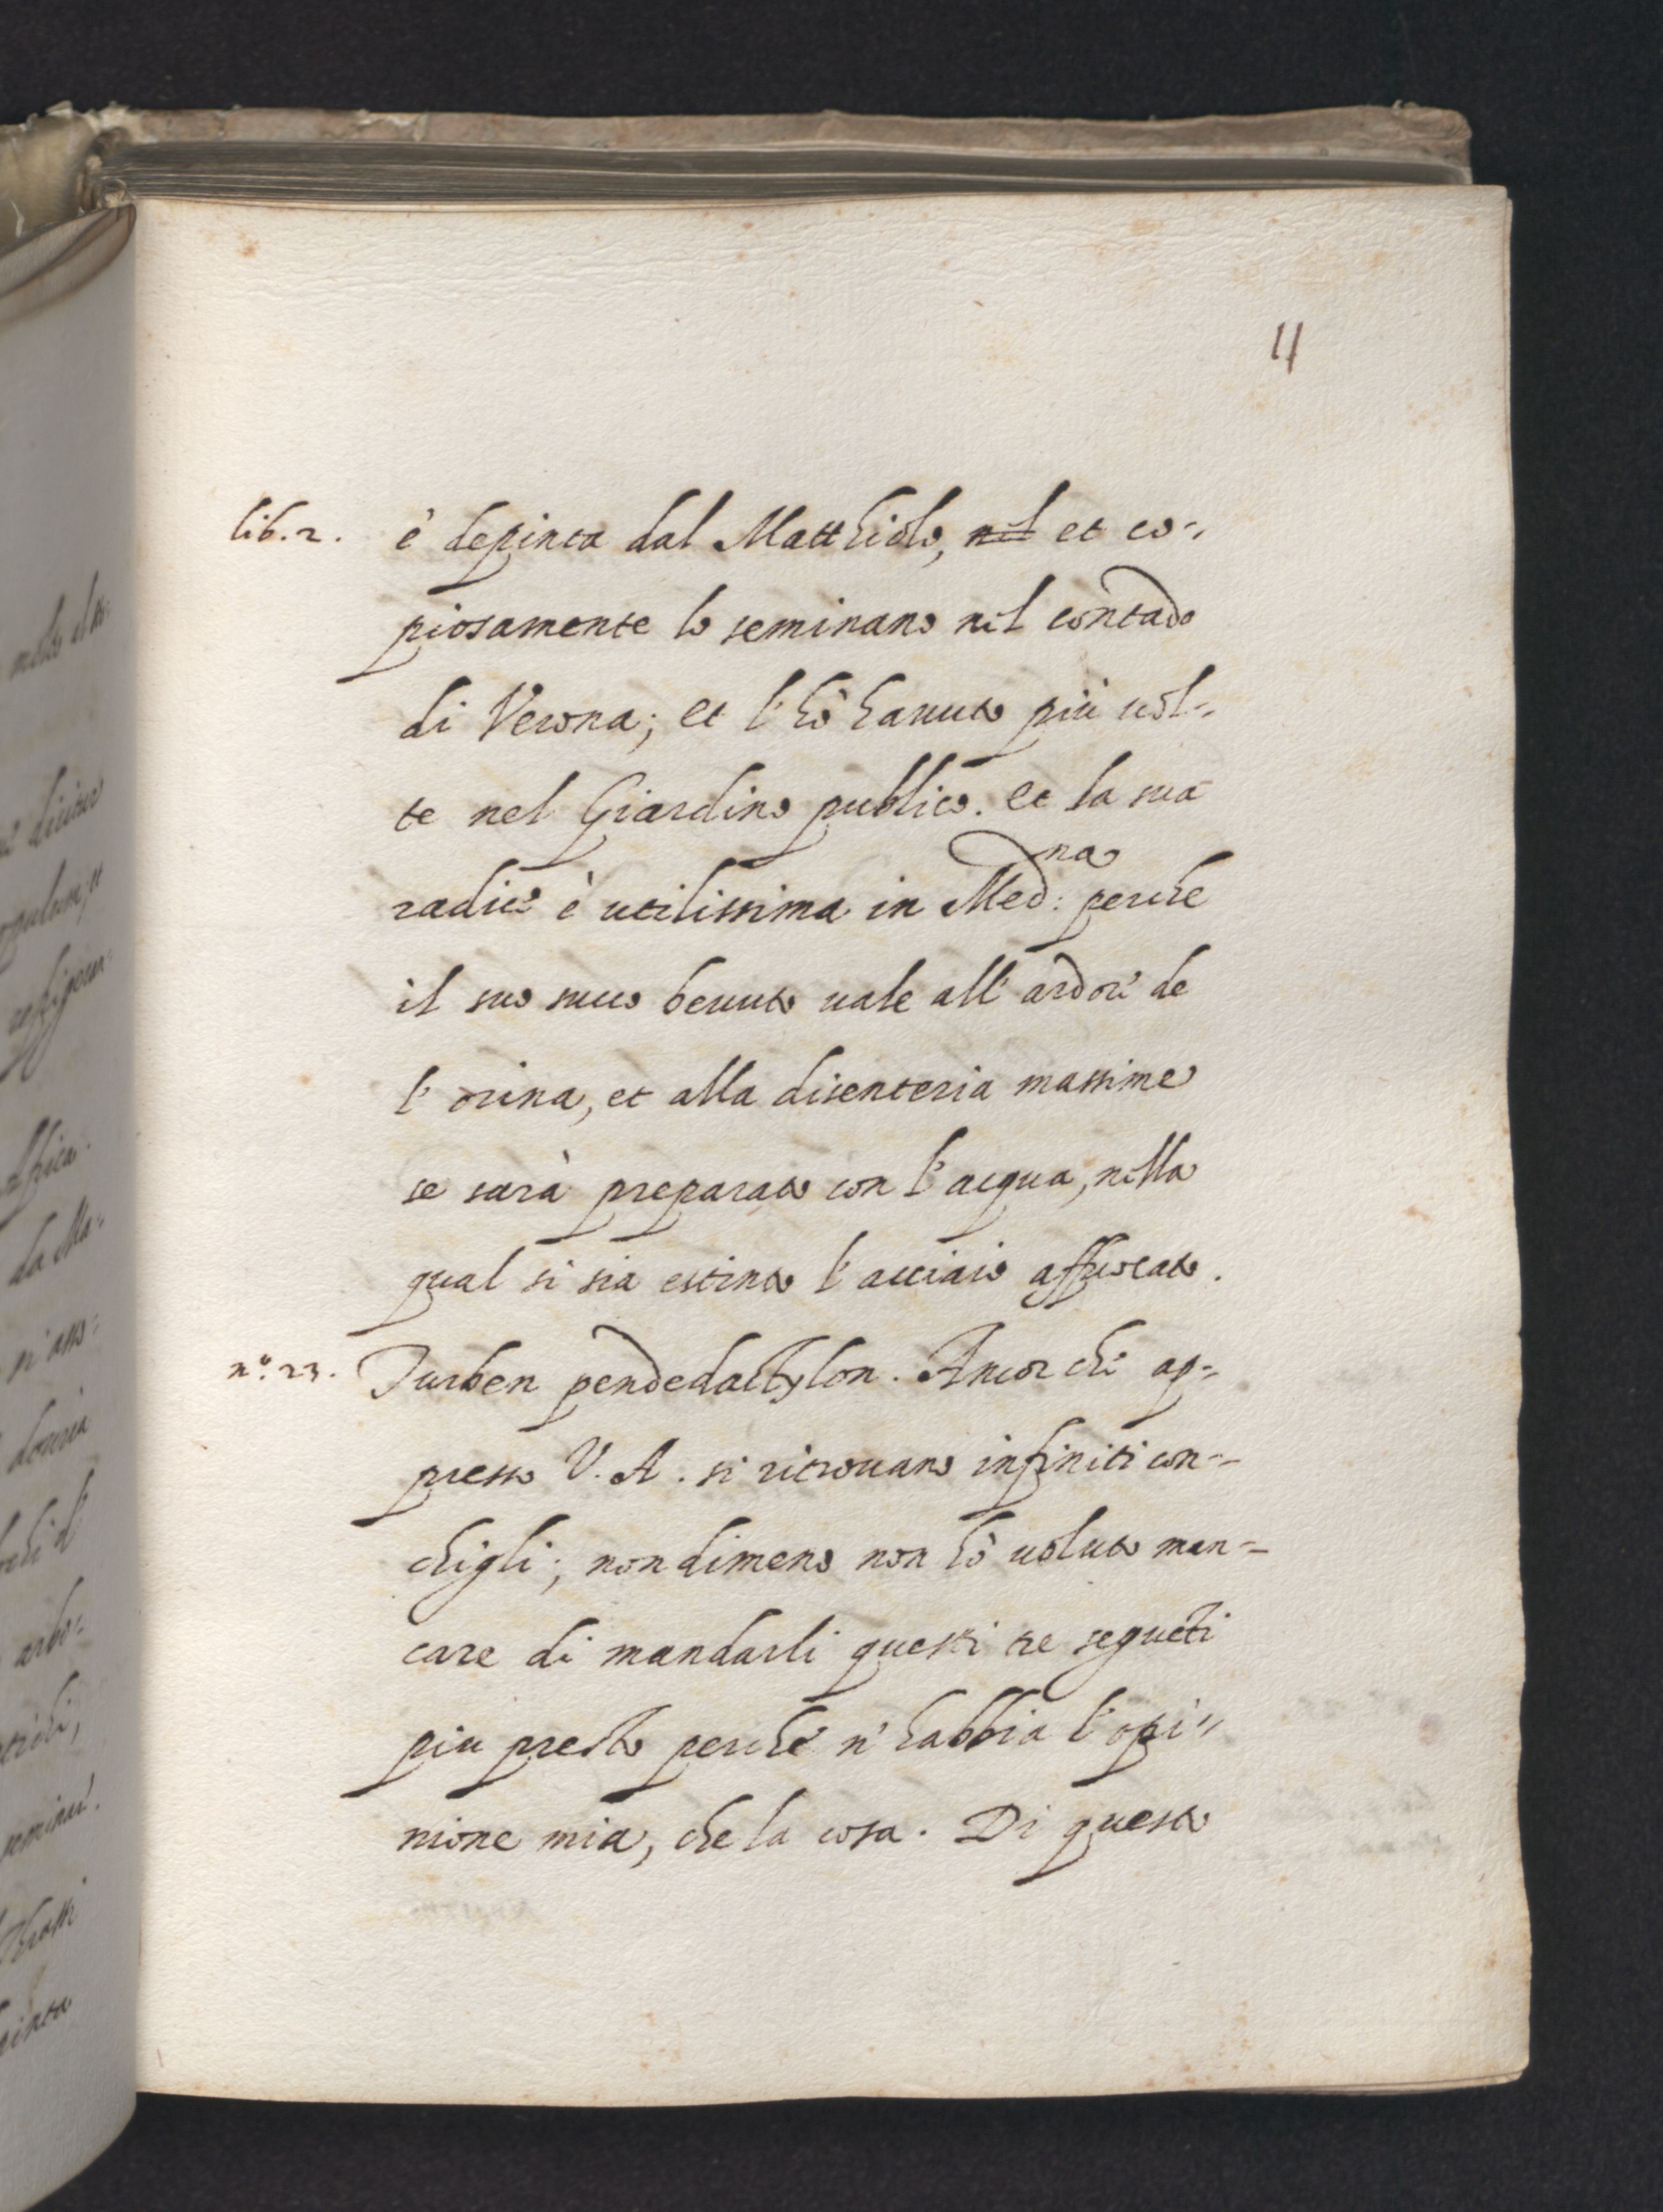 11
lib. 2. è depinta dal Matthiolo, nel et co=
piosamente lo seminano nel contado
di Verona; et l'hò hauuto più uol=
te nel Giardino publico. et la sua
radice è utilissima in Med:na perche
il suo succo beuuto uale all'ardore de
l'orina, et alla disenteria massime
se sarà preparato con l'acqua, nella
qual si sia estinto l'acciaio affuocato.
nº. 23. Turben pendedactylon. Ancor che ap=
presso V. A. si ritrouano infiniti con=
chigli; nondimeno non hò uoluto man=
care di mandarli questi tre segueti
piu presto perche n'habbia l'opi=
nione mia, che la cosa. Di questo